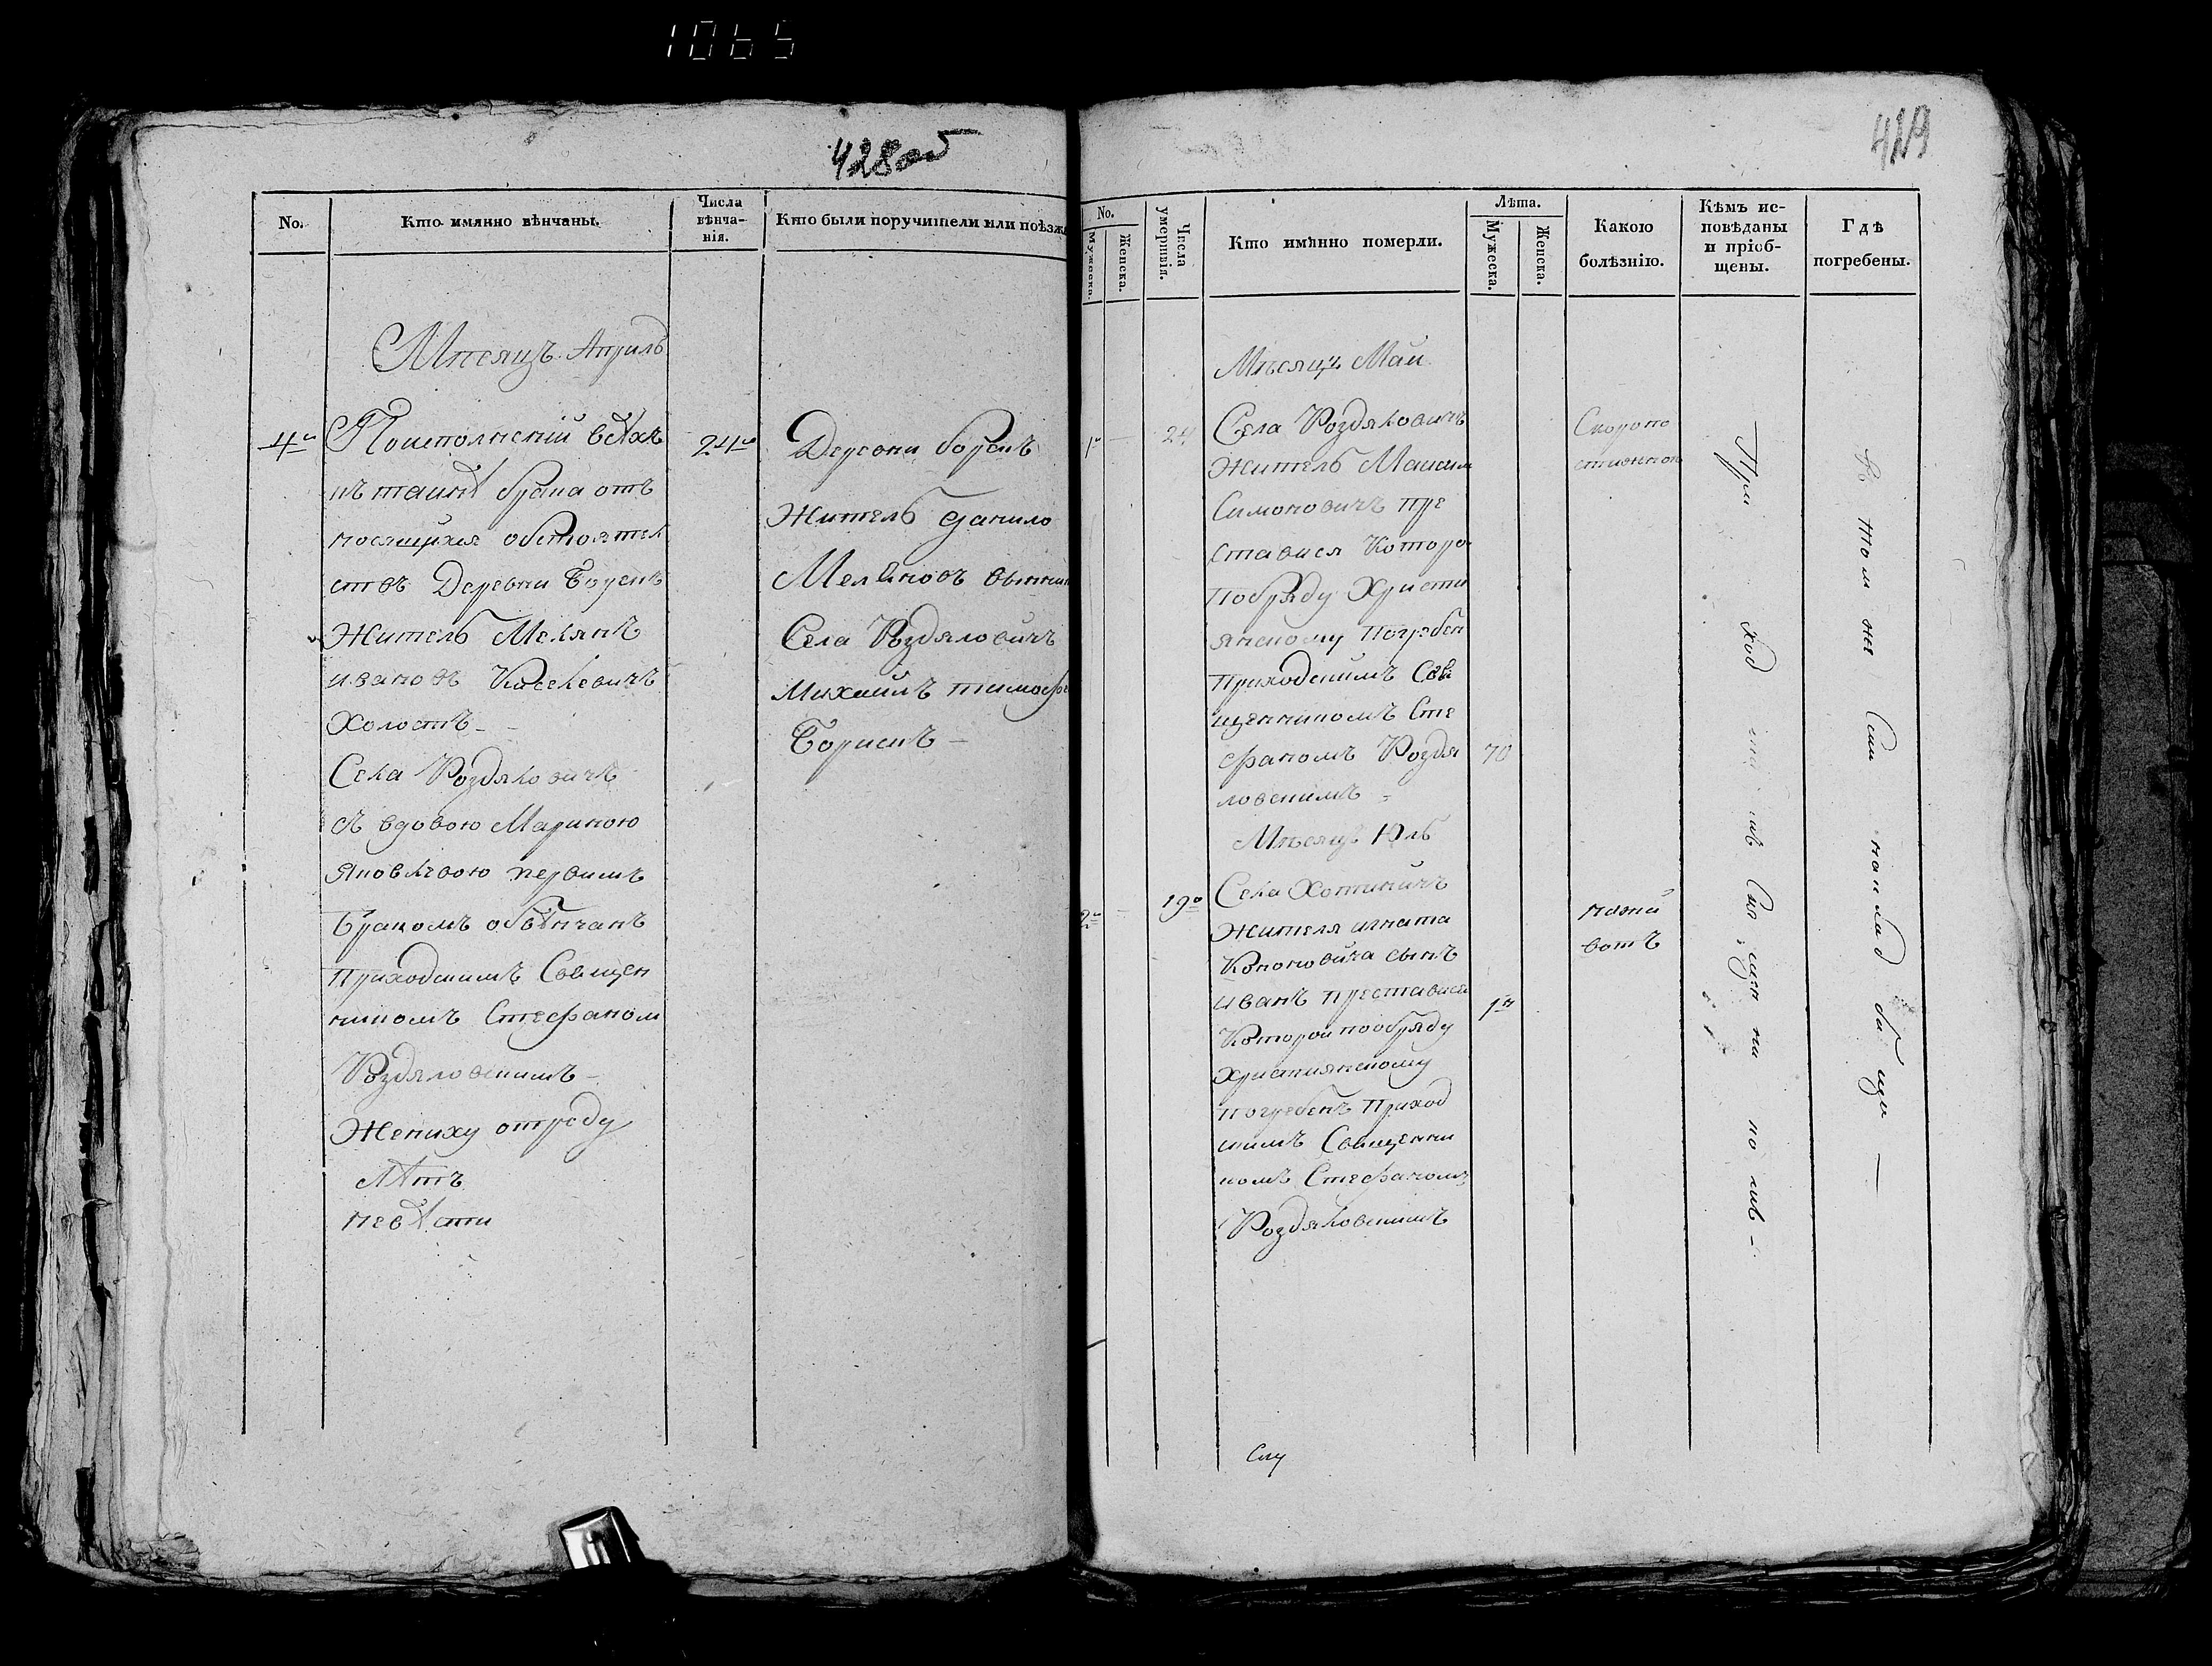 1065
428 об
No.
Кто имянно вѣнчаны.
Числа
вѣнча-
нія.
Кто были поручители или поѣзжа
Мѣсяцъ Априль
4и
По исполненіи всѣхъ
24и
къ таинѣ брака от
носящихся обстоятел
ствъ Деревни Борекъ
Житель Мелянъ
ивановъ Киселевичъ
Холостъ -
Села Роздяловичъ
съ вдовою Мариною
Яновлевою первимъ
Бракомъ обвѣнчанъ
Приходскимъ Священ
никомъ Стефаном
Роздяловскимъ -
Жениху отроду
лѣтъ
невѣсти
Деревни борекъ
Житель данило
Меляновъ
Села Роздяловичъ
Михаилъ тимофе
Борисикъ -
419
No.
Мужеска.
Женска.
Числа
умертвія.
Кто имянно померли.
Лѣта.
Мужеска.
Женска.
Какою
болѣзнію.
Кѣмъ ис-
повѣданы
и пріоб-
щены.
Гдѣ
погребены.
Мѣсяцъ Маи
1и
24
Села Роздяловичъ
Житель Максим
Симоновичъ пре
ставися Которо
по обряду Христи
янскому Погребен
Приходскимъ Свя
щенникомъ Сте
фаномъ Роздя
70
ловскимъ -
Скоропо
стижною
Мѣсяцъ Юль
2и
19о
Села Хотиничъ
Жителя игната
Кононовича сынъ
иванъ преставися
1н
Которои по обряду
Християнскому
погребенъ Приход
скимъ Священни
комъ Стефаномъ
Роздяловскимъ
на жи
вотъ
При ход ски мъ Свя щен ни ко мъ -
В том же Сели на клад би щи —